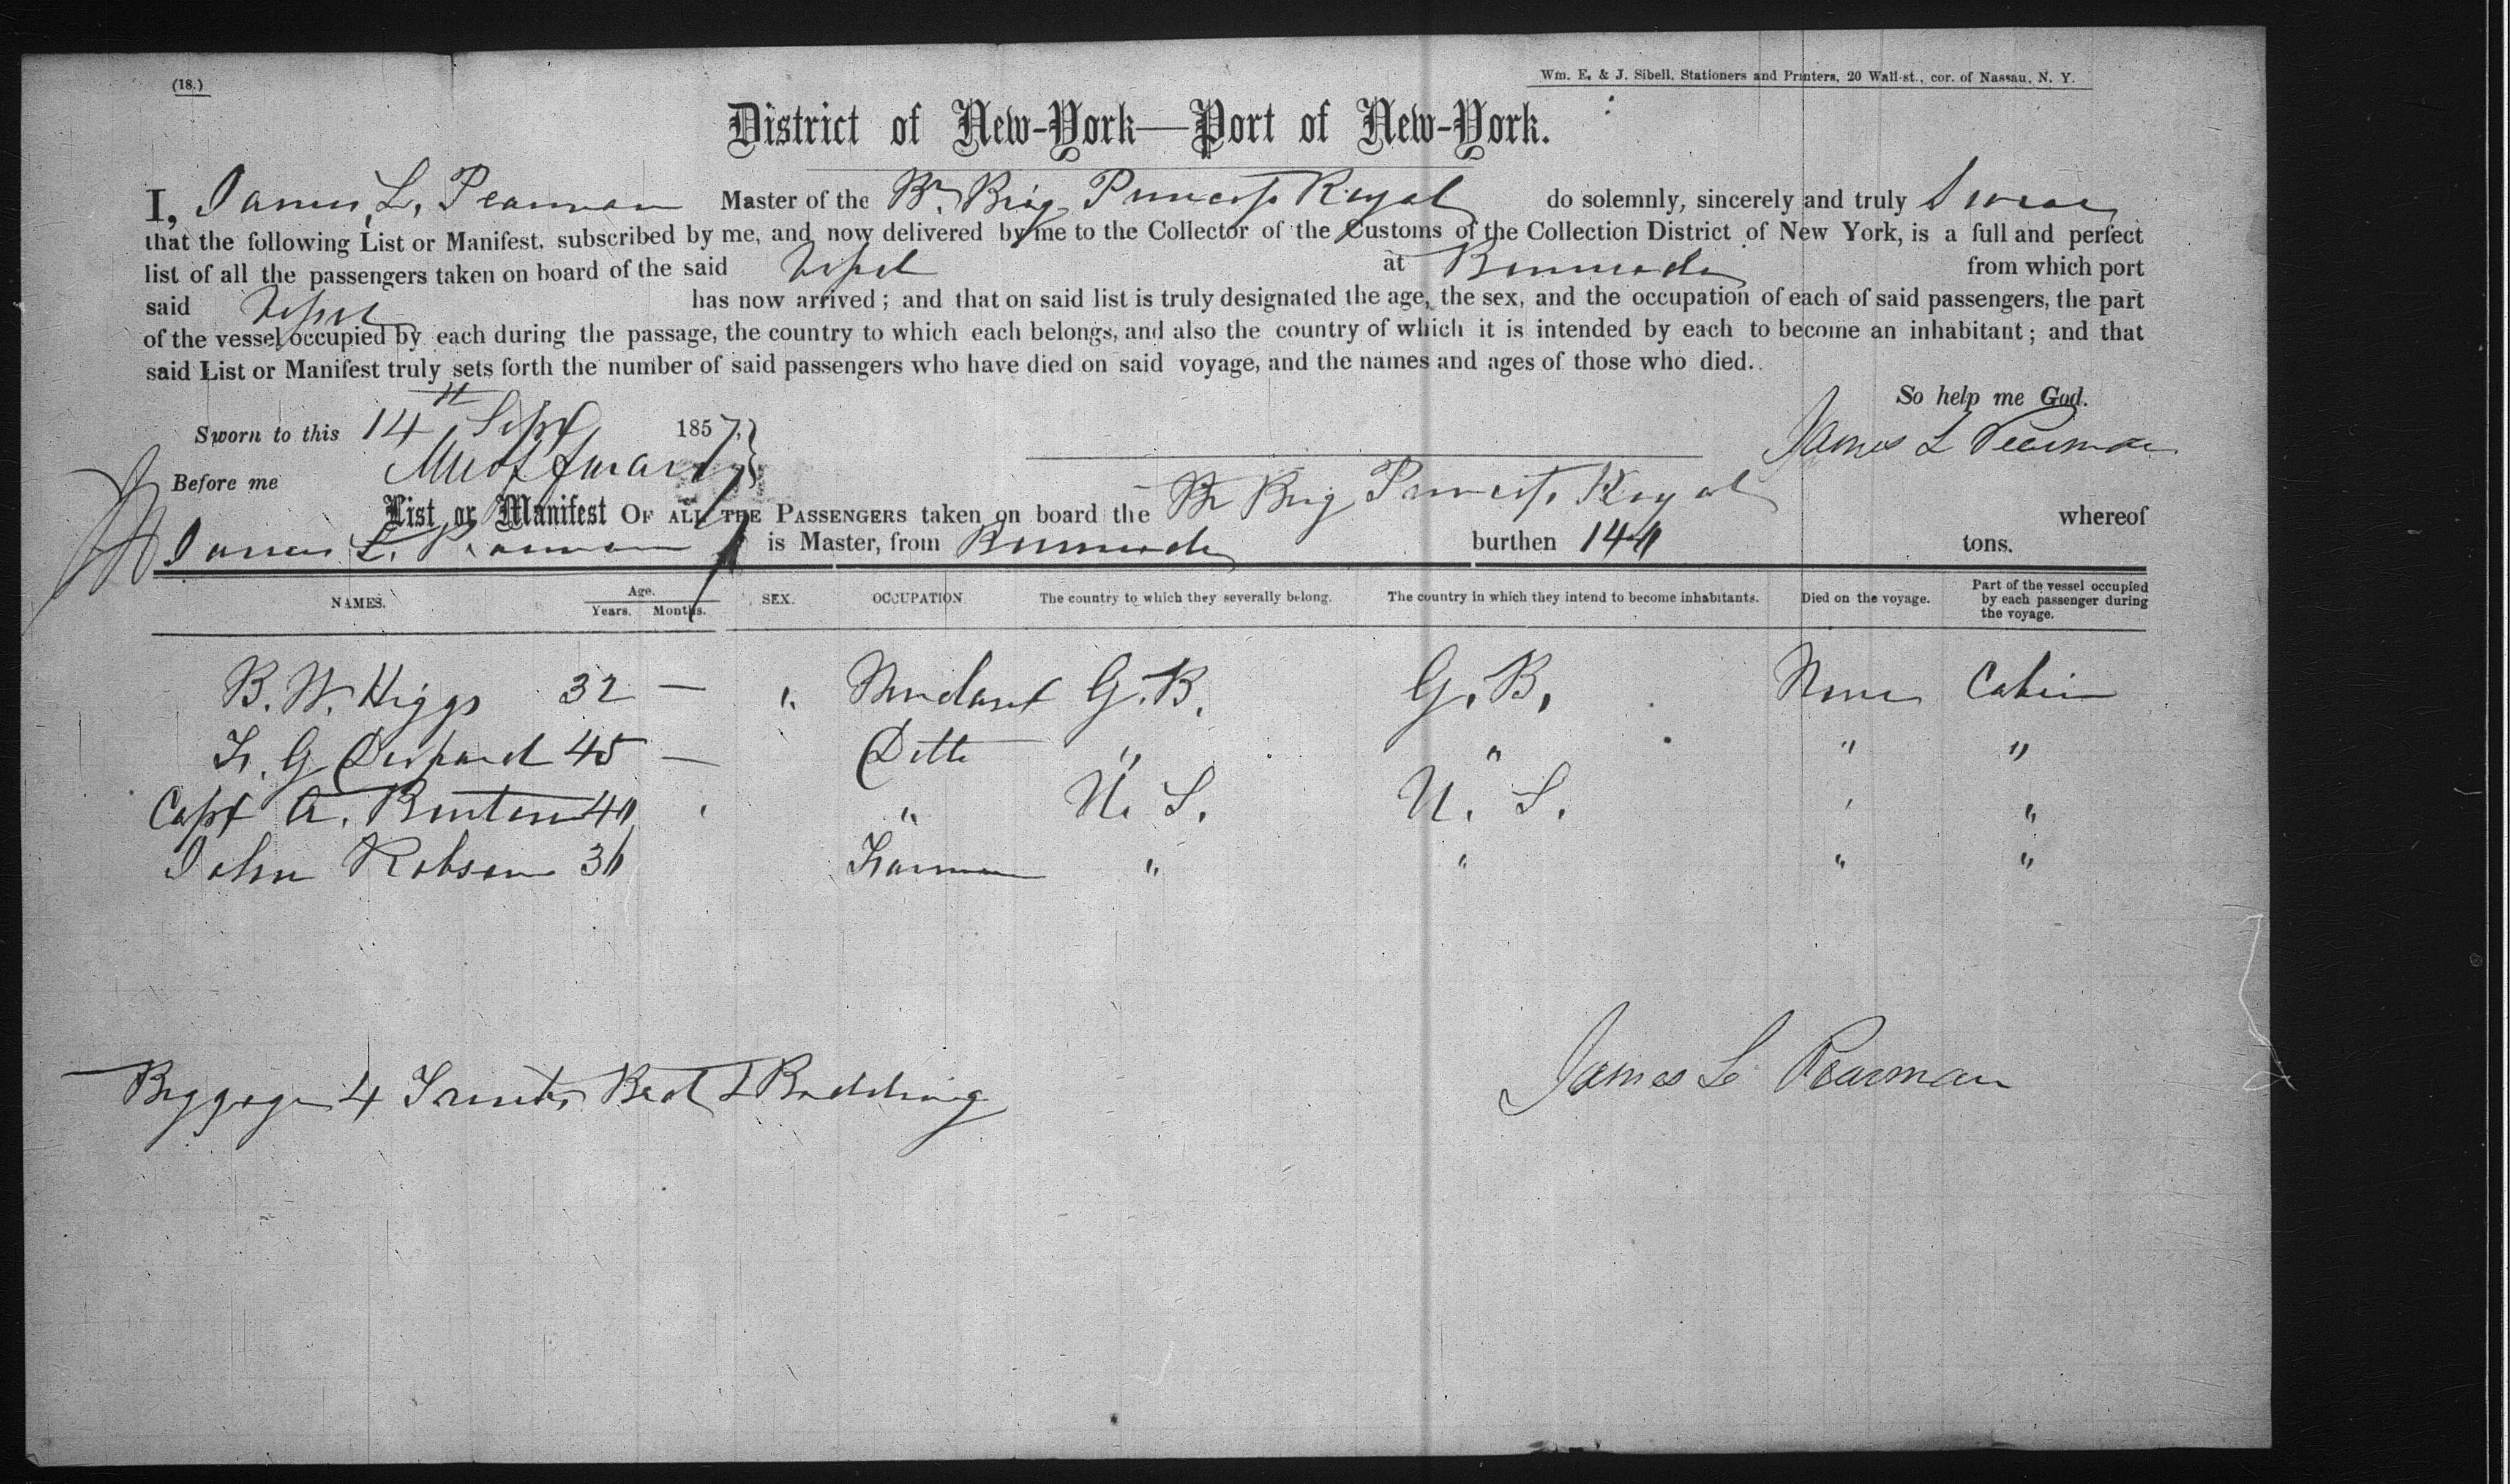 (18.)
Wm. E. & J. Sibell, Stationers and Printers, 20 Wall-st., cor. of Nassau, N. Y.
District of New-York—Port of New-York.
I, James L. Pearman Master of the Br. Brig Princess Royal do solemnly, sincerely and truly Swear
that the following List or Manifest, subscribed by me, and now delivered by me to the Collector of the Customs of the Collection District of New York, is a full and perfect
list of all the passengers taken on board of the said Vessel at Bermuda from which port
said Vessel has now arrived; and that on said list is truly designated the age, the sex, and the occupation of each of said passengers, the part
of the vessel occupied by each during the passage, the country to which each belongs, and also the country of which it is intended by each to become an inhabitant; and that
said List or Manifest truly sets forth the number of said passengers who have died on said voyage, and the names and ages of those who died.
So help me God.
Sworn to this 14th Sept 1857,
James L Pearman
Before me
List or Manifest OF ALL THE PASSENGERS taken on board the Br Brig Princess Royal whereof
James L. Pearman is Master, from Bermuda burthen 144 tons.
NAMES. Age. Years. Months. SEX. OCCUPATION The country to which they severally belong. The country in which they intend to become inhabitants. Died on the voyage. Part of the vessel occupied by each passenger during the voyage.
B. W. Higgs 32 — " Merchant G. B. G. B. None Cabin
G Despard 45 — Ditto " " " "
Capt A. Burton 40 " " U. S. U. S. " "
John Robson 36 Farmer " " " "
Baggage 4 Trunks Bed & Bedding
James L Pearman